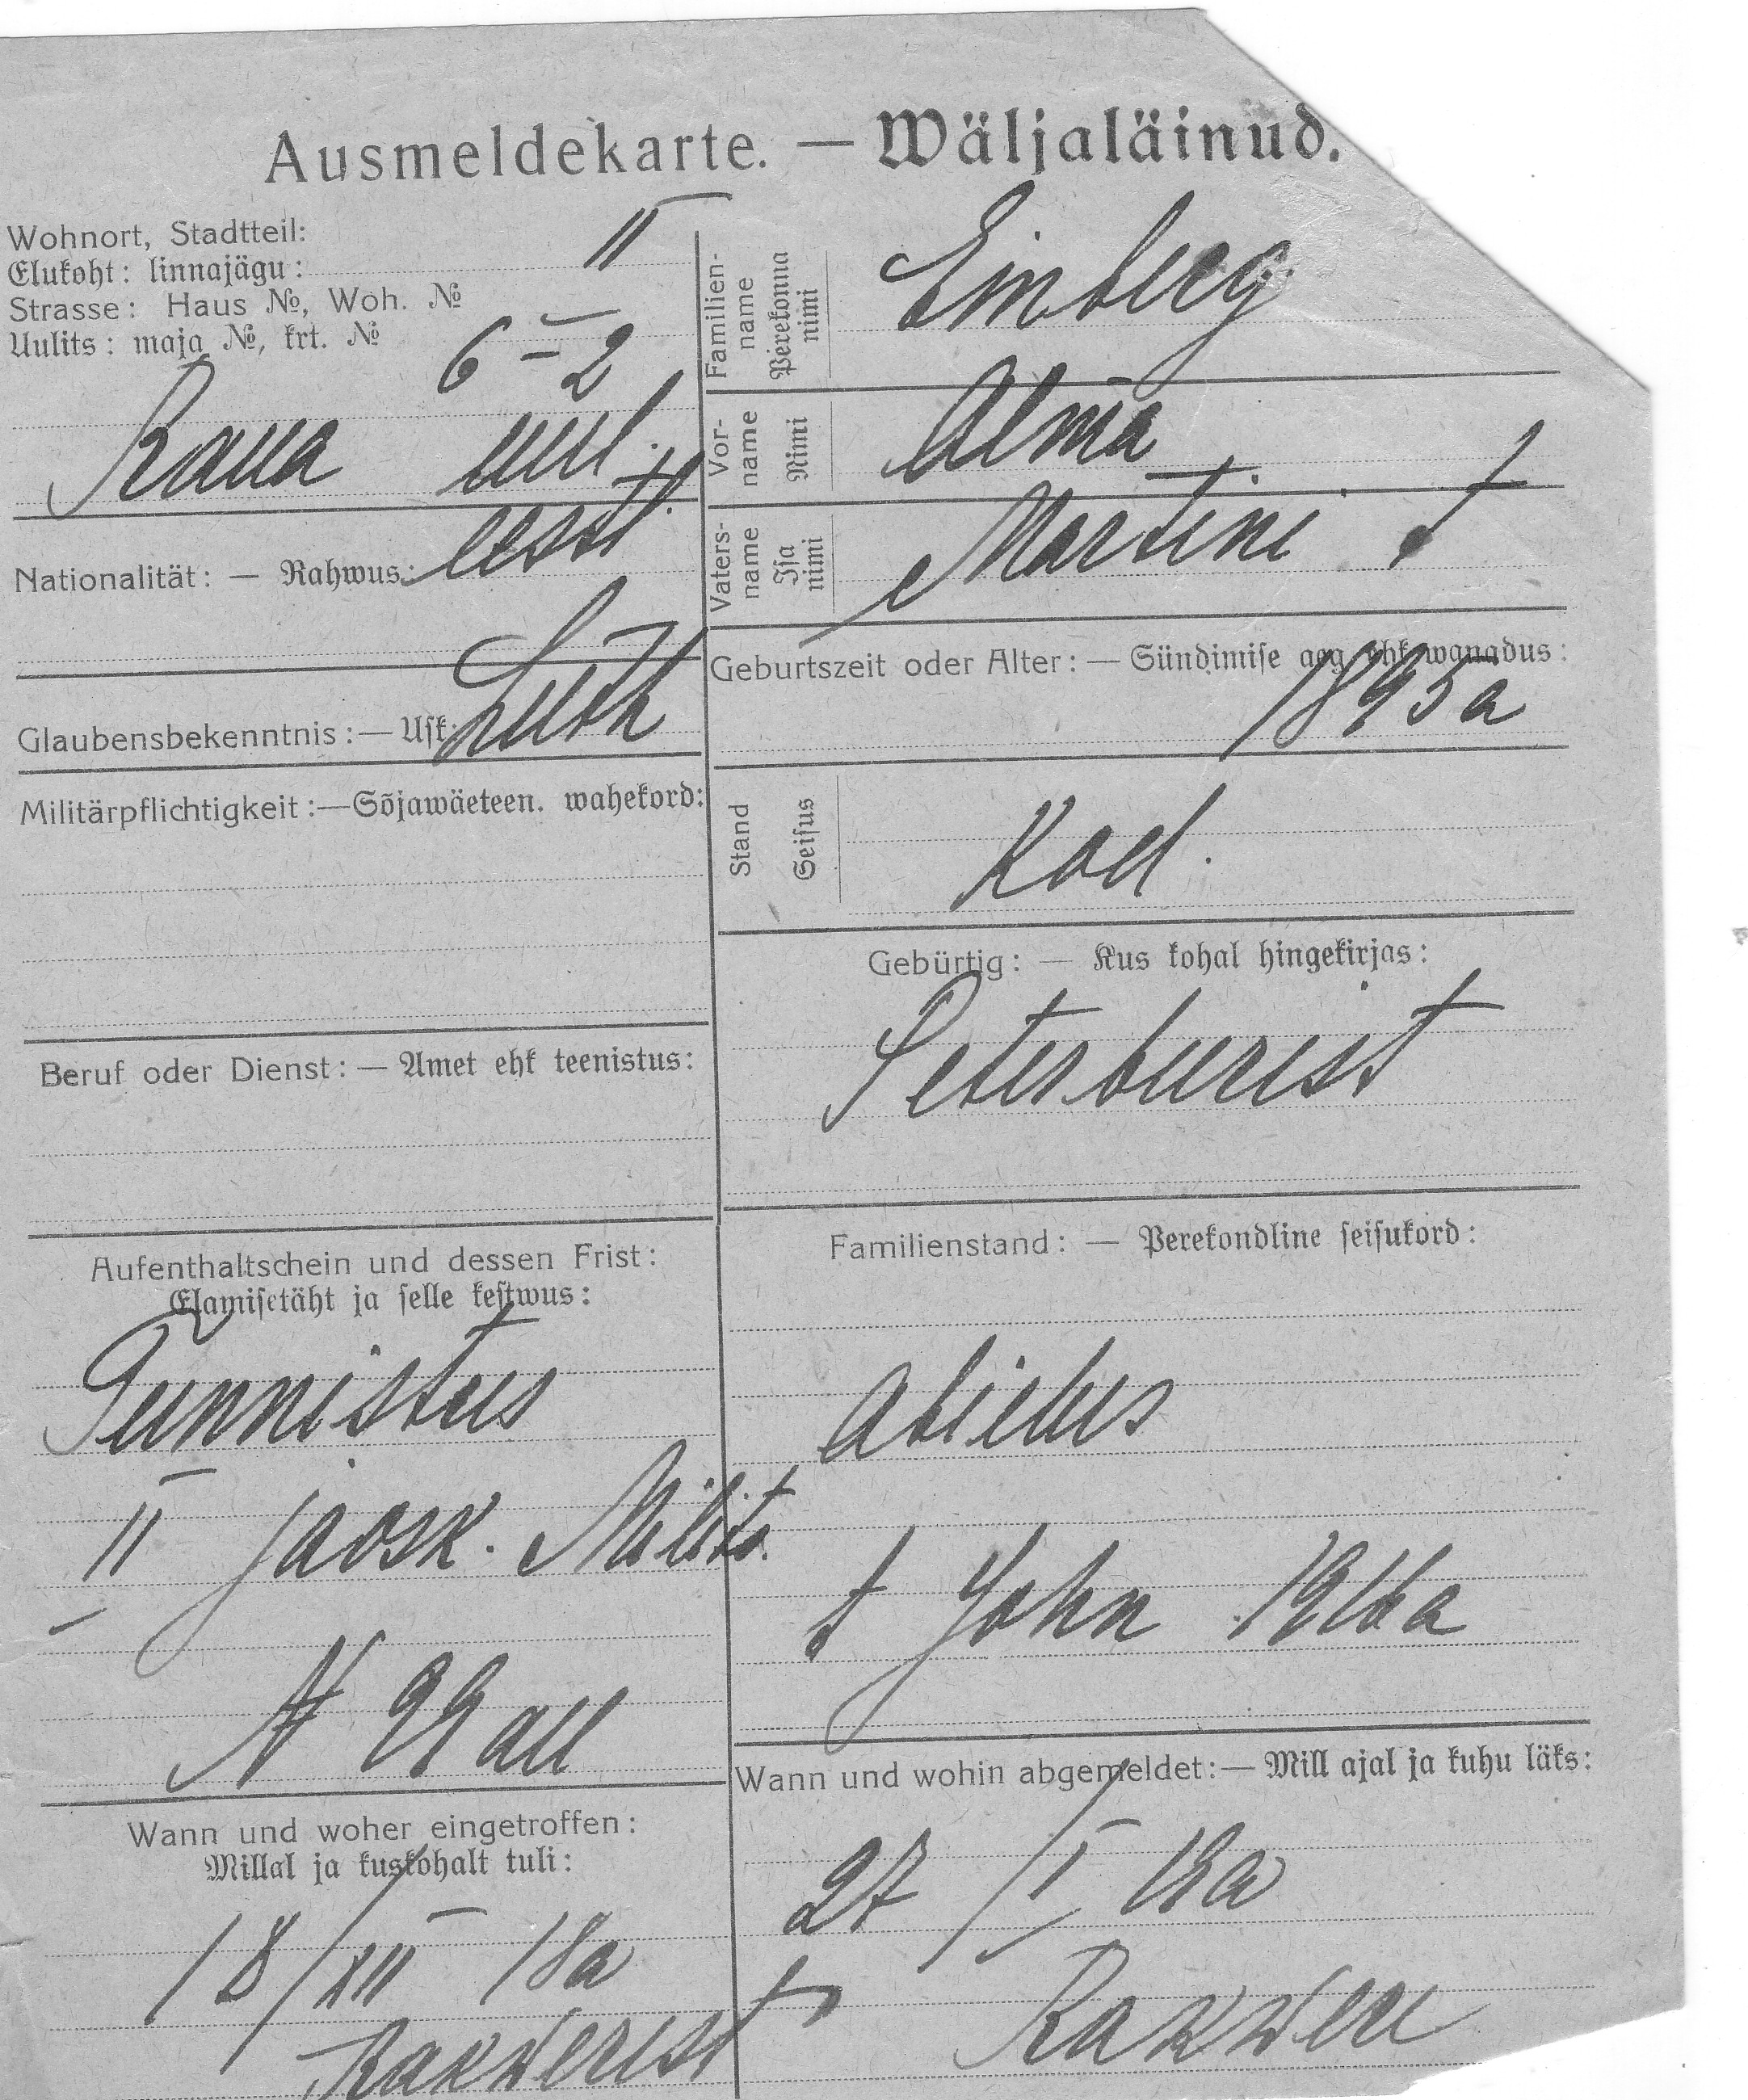 Ausmeldekarte. — Wäljaläinud.
Wohnort, Stadtteil:
Elukoht: linnajägu: II
Strasse: Haus №, Woh. №
Uulits: maja №, krt. № 6–2
Raua uul.
Nationalität: — Rahwus: eesti
Glaubensbekenntnis: — Usk: Luth
Militärpflichtigkeit: — Sõjawäeteen. wahekord:
Beruf oder Dienst: — Amet ehk teenistus:
Aufenthaltschein und dessen Frist:
Elamisetäht ja selle kestwus:
Tunnistus
II jaosk. Milits.
Wann und woher eingetroffen:
Millal ja kuskohalt tuli:
18/XII 18a
Rakwerest
Familien-
name
Perekonna
nimi
Einberg
Vor-
name
Nimi
Alma
Vaters-
name
Isa
nimi
Martini t
Geburtszeit oder Alter: — Sündimise aeg ehk wanadus:
1895a
Stand
Seisus
Kod.
Gebürtig: — Kus kohal hingekirjas:
Peterburist
Familienstand: — Perekondline seisukord:
abielus
t John 1916a
Wann und wohin abgemeldet: — Mill ajal ja kuhu läks:
27/I 19a
Rakwere